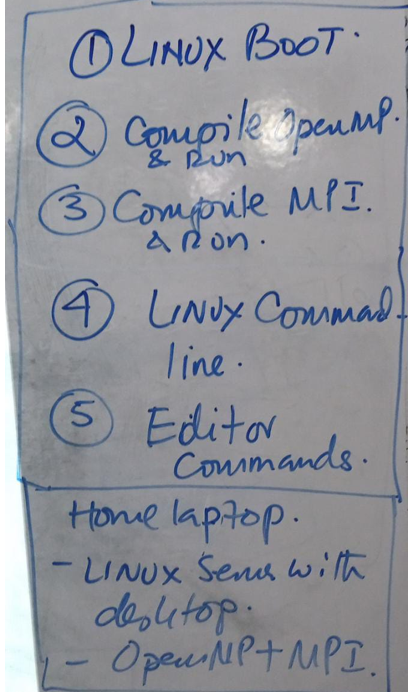 ① LINUX BOOT.
② Compile OpenMP.
& Run
③ Compile MPI.
& Run.
④ LINUX Command
line.
⑤ Editor
Commands.
Home laptop.
- LINUX Server with
desktop.
- OpenMP + MPI.